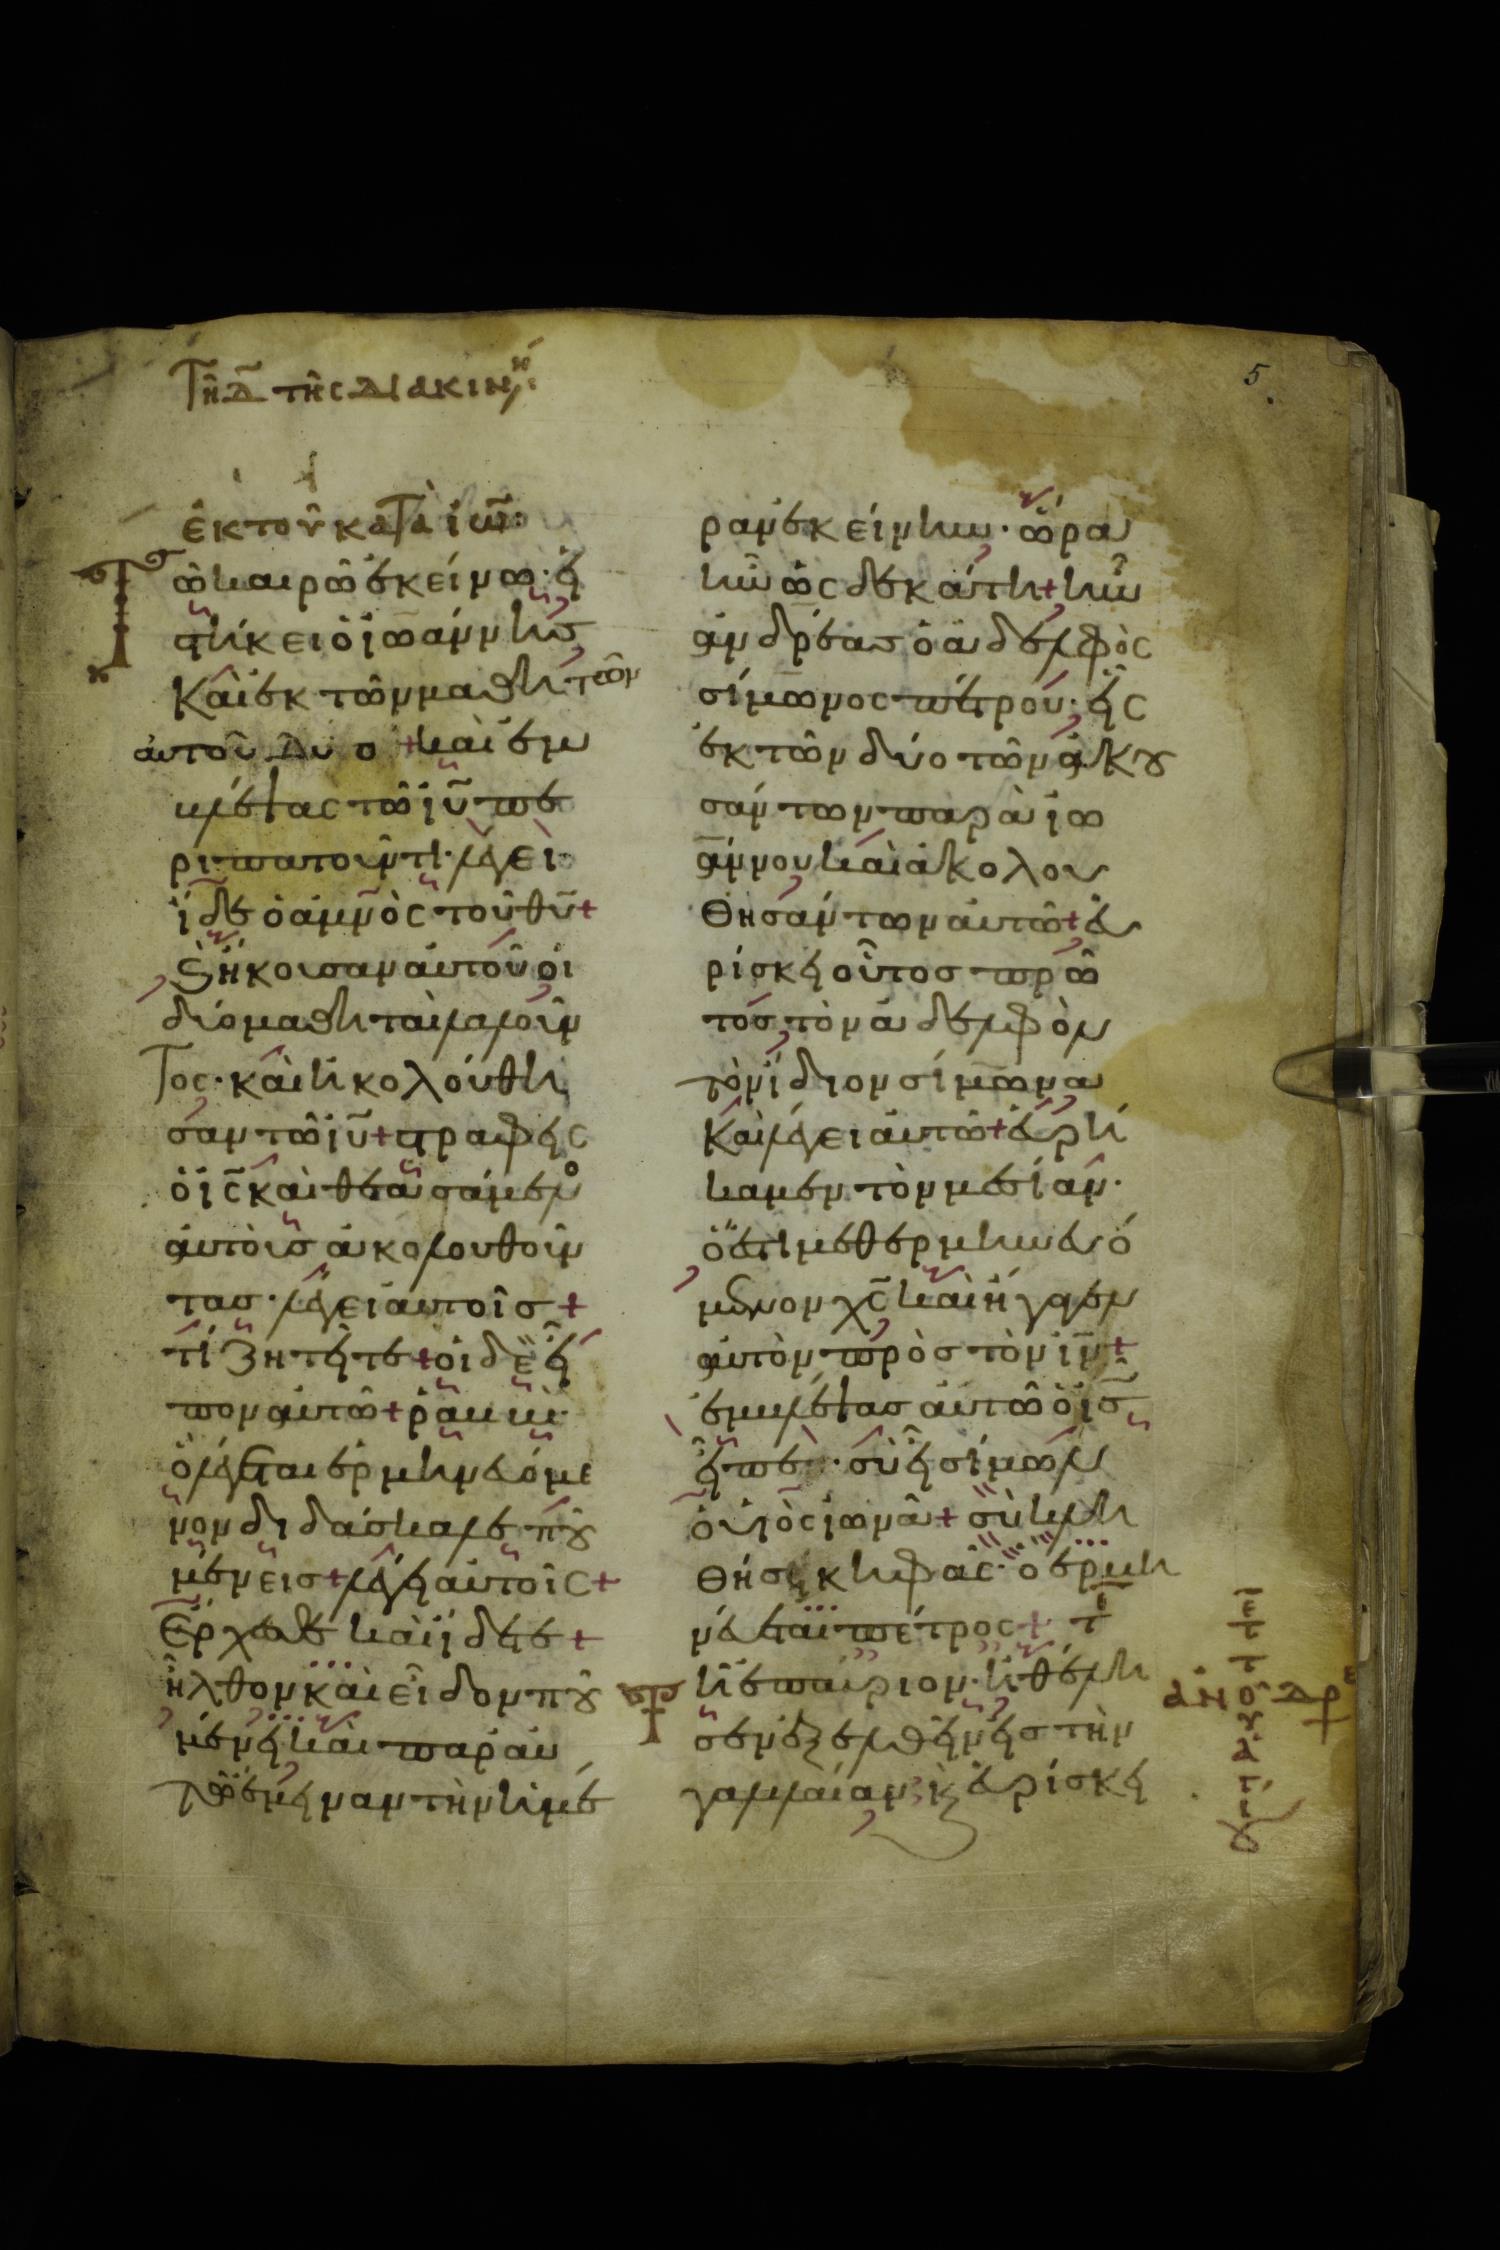 Τῆ Δ̄ τῆς διακινη:
5
ἐκ τοῦ κατὰ ἰω̅:
Τῶ καιρῶ ἐκείνω· εἱ
στήκει ὁ ἰωάννης
Καὶ ἐκ τῶν μαθητῶν
αὐτοῦ δύο + καὶ ἐμ
βλέψας τῶ ἰυ̅ πε
ριπατοῦντι· λέγει·
ἴδε ὁ ἀμνὸς τοῦ θυ̅ +
Ϛ ἤκουσαν αὐτοῦ οἱ
δύο μαθηταὶ λαλοῦν
Τος· καὶ ἠκολούθη
σαν τῶ ἰυ̅ + στραφεὶς
ὁ ις̅ καὶ θεασάμενο
αὐτοὺς ἀκολουθοῦν
τας· λέγει αὐτοῖς +
τί ζητεῖτε + οἱ δὲ εἶ
πον αὐτῶ + ῥαββὶ·
ὃ λέγεται ἑρμηνευόμε
νον διδάσκαλε ποῦ
μένεις + λέγει αὐτοῖς +
Ἔρχεσθε καὶ ἴδετε +
ἦλθον καὶ εἶδον ποῦ
μένει καὶ παρ' αὐ
τῶ ἔμειναν τὴν ἡμέ
ραν ἐκείνην· ὥρα
ἦν ὡς δεκάτη + ἦν
ἀνδρέας ὁ ἀδελφὸς
σίμωνος πέτρου· εἷς
ἐκ τῶν δύο τῶν ἀκου
σάντων παρὰ ἰω
άννου καὶ ἀκολου
θησάντων αὐτῶ + εὑ
ρίσκει οὗτος πρῶ
τος τὸν ἀδελφὸν
τὸν ἴδιον σίμωνα
Καὶ λέγει αὐτῶ + εὑρή
καμεν τὸν μεσίαν·
ὅ ἐστι μεθερμηνευό
μενον χς̅ καὶ ἤγαγεν
αὐτὸν πρὸς τὸν ιν̅ +
ἐμβλέψας αὐτῶ ὁ ις̅
εἶπε· σὺ εἶ σίμων
ὁ υἱὸς ἰωνᾶ + σὺ κλη
θήσει κηφᾶς· ὃ ἑρμη
νεύεται πέτρος + τ
Τῆ ἐπαύριον· ἠθέλη
σεν ἐξελθεῖν εἰς τὴν
γαλλαίαν· κ εὑρίσκει